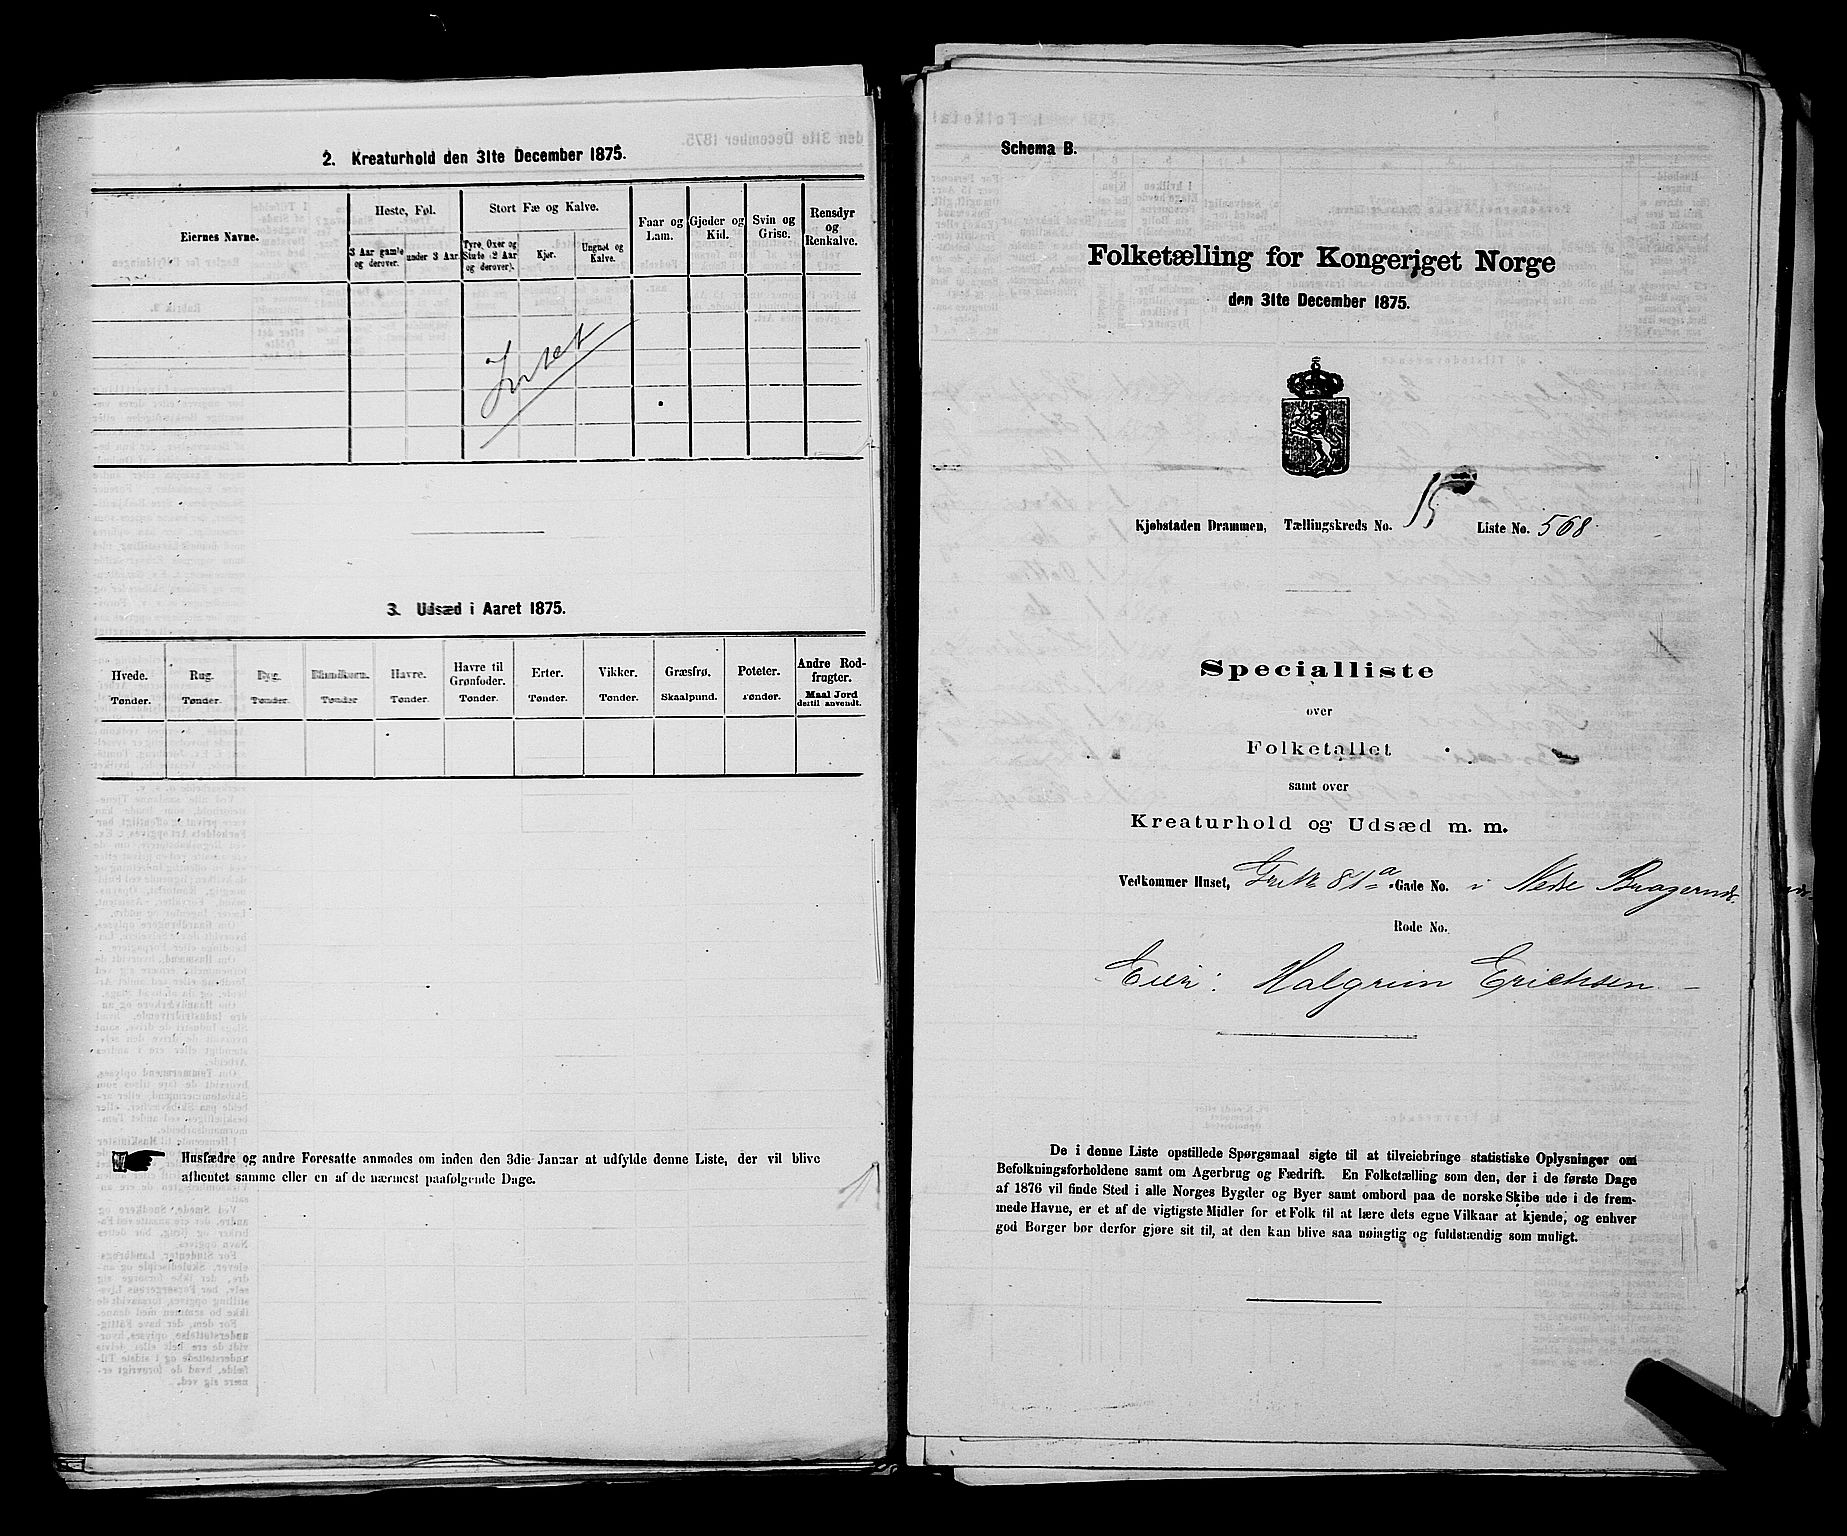 2. Kreaturhold den 31te December 1875.
Eiernes Navne.
Heste, Føl.
3 Aar gamle og derover.
under 3 Aar.
Stort Fæ og Kalve.
Tyre, Oxer og Stute (2 Aar og derover).
Kjør.
Ungnøt og Kalve.
Faar og Lam.
Gjeder og Kid.
Svin og Grise.
Rensdyr og Renkalve.
Intet
3. Udsæd i Aaret 1875.
Hvede. Tønder.
Rug. Tønder.
Byg. Tønder.
Blandkorn. Tønder
Havre. Tønder.
Havre til Grønfoder. Tønder.
Erter. Tønder.
Vikker. Tønder.
Græsfrø. Skaalpund.
Poteter. Tønder.
Andre Rodfrugter. Maal Jord dertil anvendt.
Husfædre og andre Foresatte anmodes om inden den 3die Januar at udfylde denne Liste, der vil blive
afhentet samme eller en af de nærmest paafølgende Dage.
Schema B.
Folketælling for Kongeriget Norge
den 31te December 1875.
Kjøbstaden Drammen, Tællingskreds No. 15 Liste No. 568.
Specialliste
over
Folketallet
samt over
Kreaturhold og Udsæd m. m.
Vedkommer Huset, 81a Gade No. i Nedre Bragernæs
Rode No.
Eier: Halgrim Erichsen
De i denne Liste opstillede Spørgsmaal sigte til at tilveiebringe statistiske Oplysninger om
Befolkningsforholdene samt om Agerbrug og Fædrift. En Folketælling som den, der i de første Dage
af 1876 vil finde Sted i alle Norges Bygder og Byer samt ombord paa de norske Skibe ude i de frem-
mede Havne, er et af de vigtigste Midler for et Folk til at lære dets egne Vilkaar at kjende, og enhver
god Borger bør derfor gjøre sit til, at den kan blive saa nøiagtig og fuldstændig som muligt.